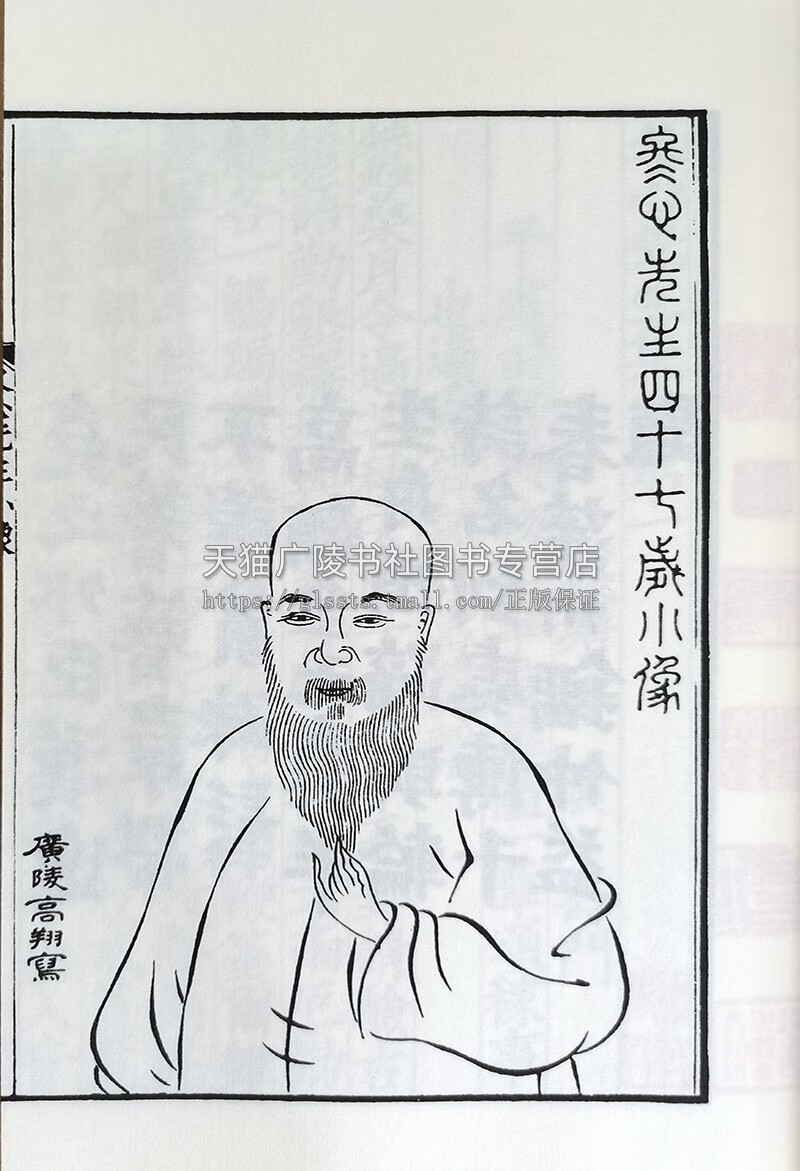 冬心先生四十七歲小像
天猫广陵书社图书专营店
https://glssts.tmall.com/正版保证
廣陵高翔寫